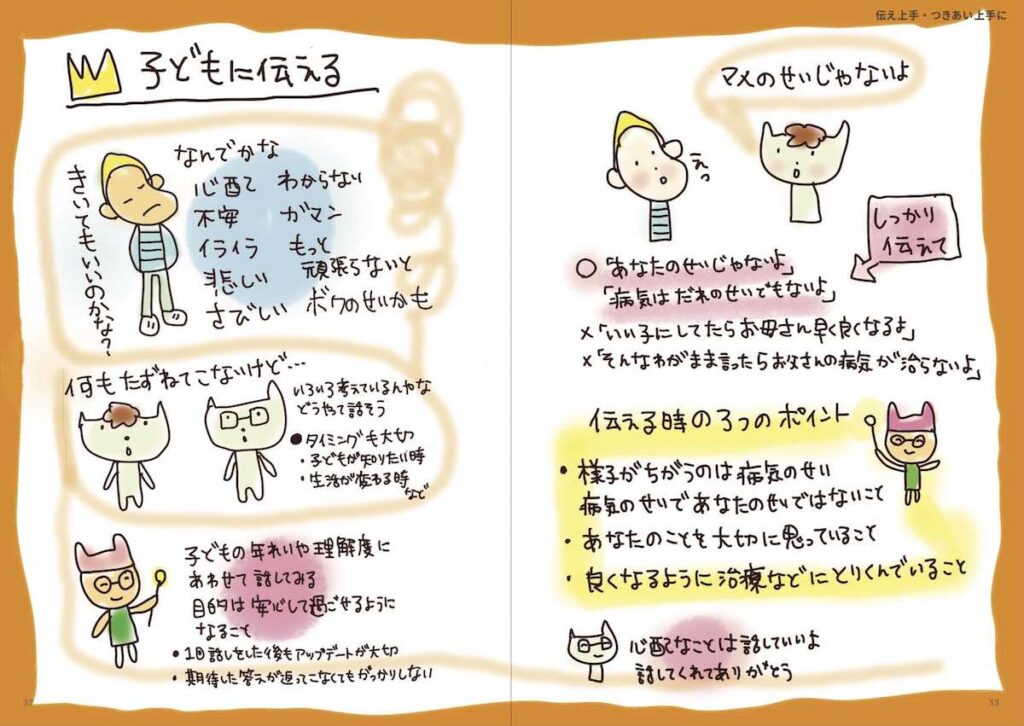 伝え上手・つきあい上手に
子どもに伝える
きいてもいいのかな?
なんでかな
心配て わからない
不安 ガマン
イライラ もっと
頑張らないと
悲しい
さびしい ボクのせいかも
何もたずねてこないけど…
いろいろ考えているんやな
どうやって話そう
●タイミングも大切
・子どもが知りたい時
・生活が変わる時
など
子どもの年れいや理解度に
あわせて話してみる
目的は安心して過ごせるように
なること
●1回話しをした後もアップデートが大切
・期待した答えが返ってこなくてもがっかりしない
32
マメのせいじゃないよ
えっ
しっかり
伝えて
○「あなたのせいじゃないよ」
「病気はだれのせいでもないよ」
×「いい子にしてたらお母さん早く良くなるよ」
×「そんなわがまま言ったらお父さんの病気が治らないよ」
伝える時の3つのポイント
●様子がちがうのは病気のせい
病気のせいであなたのせいではないこと
・あなたのことを大切に思っていること
・良くなるように治療などにとりくんでいること
心配なことは話していいよ
話してくれてありがとう
33